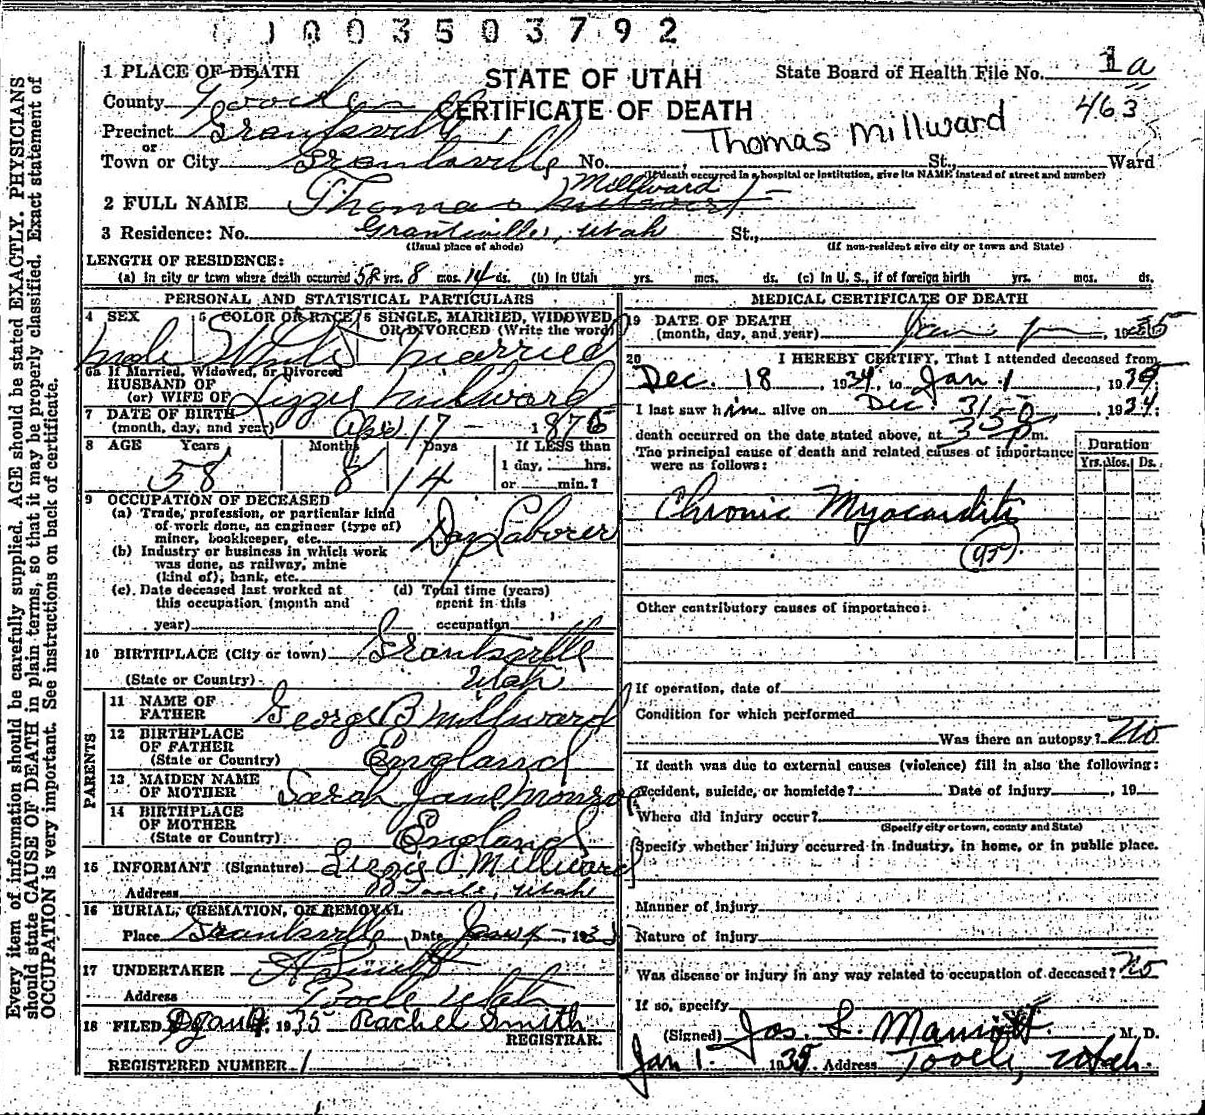 0 0 3 5 0 3 7 9 2
Every item of information should be carefully supplied. AGE should be stated EXACTLY. PHYSICIANS
should state CAUSE OF DEATH in plain terms, so that it may be properly classified. Exact statement of
OCCUPATION is very important. See instructions on back of certificate.
STATE OF UTAH
CERTIFICATE OF DEATH
State Board of Health File No. 1a
463
Thomas Millward
1 PLACE OF DEATH
County Tooele
Precinct Grantsville
or
Town or City Grantsville No. , St., Ward
(If death occurred in a hospital or institution, give its NAME instead of street and number)
Millward
2 FULL NAME Thomas
3 Residence: No. Grantsville, Utah St.,
(Usual place of abode) (If non-resident give city or town and State)
LENGTH OF RESIDENCE:
(a) In city or town where death occurred 58 yrs. 8 mos. 14 ds. (b) In Utah yrs. mos. ds. (c) In U. S., if of foreign birth yrs. mos. ds.
PERSONAL AND STATISTICAL PARTICULARS
4 SEX 5 COLOR OR RACE 6 SINGLE, MARRIED, WIDOWED,
OR DIVORCED (Write the word)
male White married
6a If Married, Widowed, or Divorced
HUSBAND OF
(or) WIFE OF Lizzie Millward
7 DATE OF BIRTH
(month, day, and year) Apr 17 - 1876
8 AGE Years Months Days If LESS than
58 8 14 1 day, hrs.
or min.?
9 OCCUPATION OF DECEASED
(a) Trade, profession, or particular kind
of work done, as engineer (type of)
miner, bookkeeper, etc. Day Laborer
(b) Industry or business in which work
was done, as railway, mine
(kind of), bank, etc.
(c) Date deceased last worked at
this occupation (month and
year)
(d) Total time (years)
spent in this
occupation
10 BIRTHPLACE (City or town) Grantsville
(State or Country) Utah
PARENTS
11 NAME OF
FATHER George B Millward
12 BIRTHPLACE
OF FATHER
(State or Country) England
13 MAIDEN NAME
OF MOTHER Sarah Jane Monroe
14 BIRTHPLACE
OF MOTHER
(State or Country) England
15 INFORMANT (Signature) Lizzie Millward
Address Tooele, Utah
16 BURIAL, CREMATION, OR REMOVAL
Place Grantsville Date Jan 4 -, 1935
17 UNDERTAKER
Address Tooele Utah
18 FILED Jan 4, 1935 Rachel Smith
REGISTRAR.
REGISTERED NUMBER 1
MEDICAL CERTIFICATE OF DEATH
19 DATE OF DEATH
(month, day, and year) Jan 1 - 1935
20 I HEREBY CERTIFY, That I attended deceased from
Dec. 18, 1934, to Jan 1, 1935
I last saw him alive on Dec. 31, 1934;
death occurred on the date stated above, at 3 50 P m.
The principal cause of death and related causes of importance
were as follows:
Duration
Yrs. Mos. Ds.
Chronic Myocarditis
(95)
Other contributory causes of importance:
If operation, date of
Condition for which performed
Was there an autopsy? No
If death was due to external causes (violence) fill in also the following:
Accident, suicide, or homicide? Date of injury , 19
Where did injury occur?
(Specify city or town, county and State)
Specify whether injury occurred in industry, in home, or in public place.
Manner of injury
Nature of injury
Was disease or injury in any way related to occupation of deceased? No
If so, specify
(Signed) Jos. L. Marriott M. D.
Jan 1 - 1935 Address Tooele, Utah.